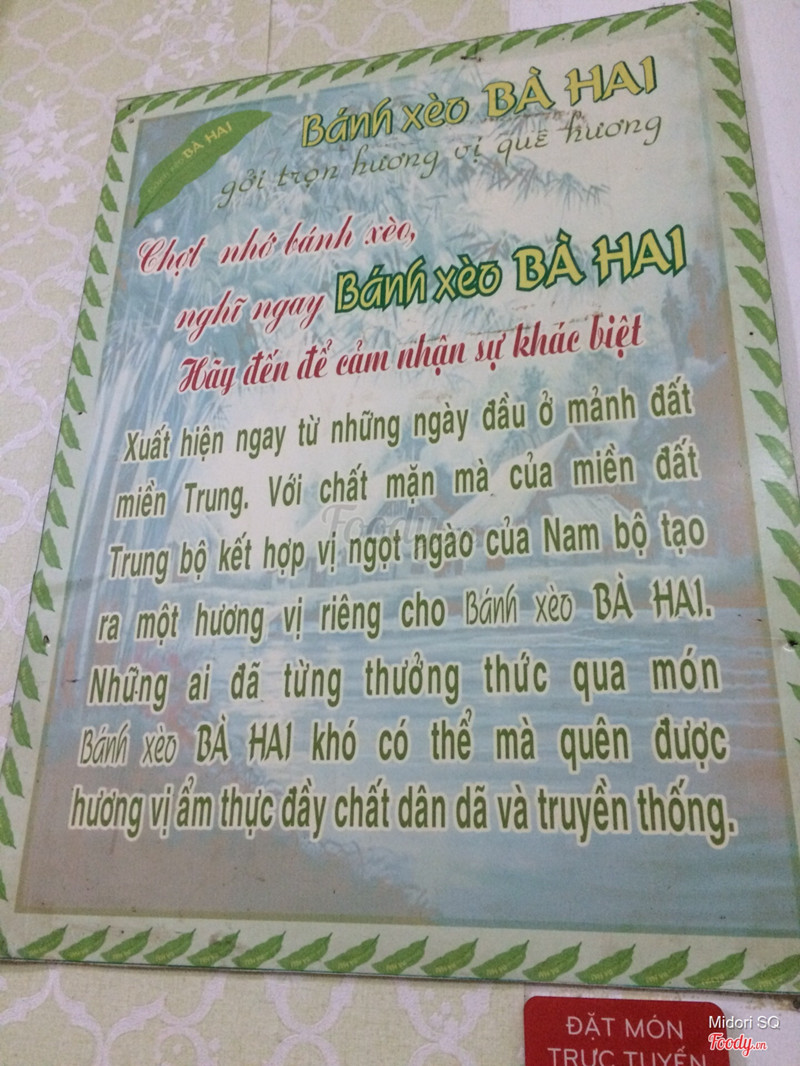 Bánh xèo BÀ HAI
Bánh xèo BÀ HAI
gởi trọn hương vị quê hương
Chợt nhớ bánh xèo,
nghĩ ngay Bánh xèo BÀ HAI
Hãy đến để cảm nhận sự khác biệt
Xuất hiện ngay từ những ngày đầu ở mảnh đất
miền Trung. Với chất mặn mà của miền đất
Trung bộ kết hợp vị ngọt ngào của Nam bộ tạo
ra một hương vị riêng cho Bánh xèo BÀ HAI.
Những ai đã từng thưởng thức qua món
Bánh xèo BÀ HAI khó có thể mà quên được
hương vị ẩm thực đầy chất dân dã và truyền thống.
Foody
ĐẶT MÓN
TRỰC TUYẾN
Midori SQ
Foody.vn